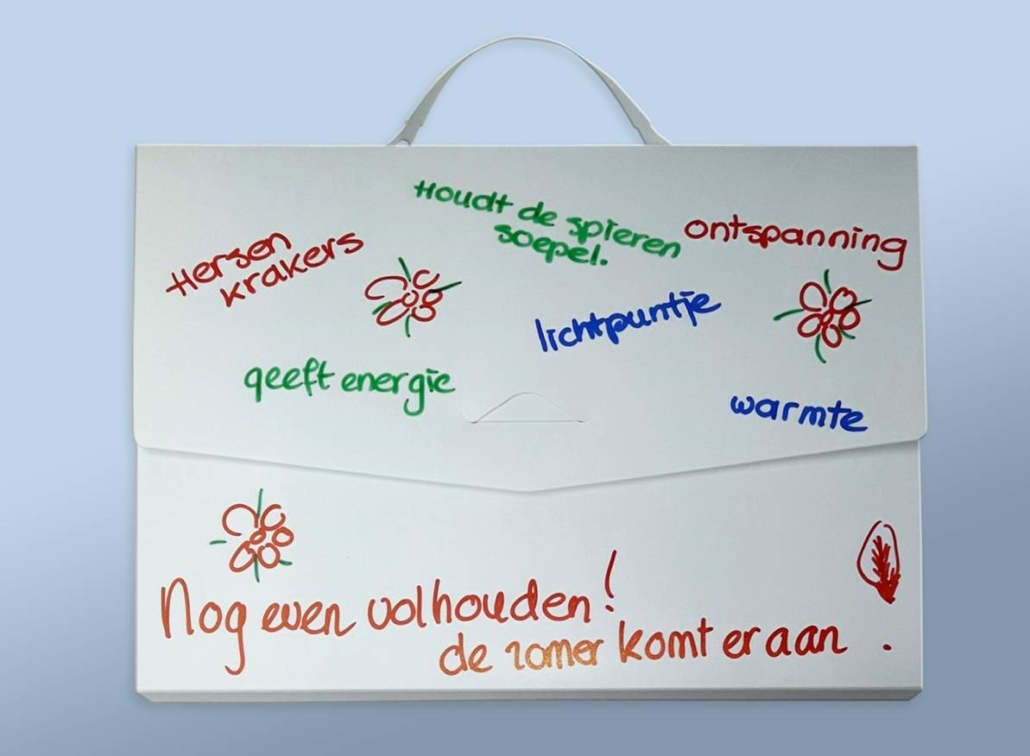 Houdt de spieren
soepel.
Hersen
krakers
ontspanning
lichtpuntje
geeft energie
warmte
Nog even volhouden!
de zomer komt eraan.